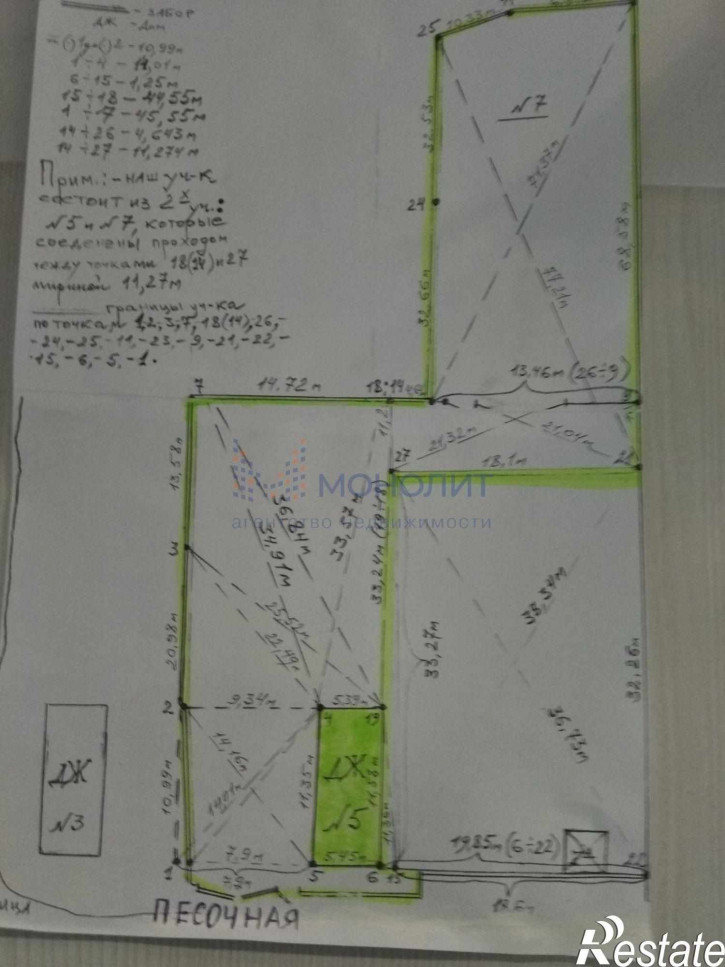 - ЗАБОР
ДЖ - Дом
- 10,99м
1÷4 - 14,01м
6÷15 - 1,25м
15÷18 - 44,55м
1÷17 - 45,55м
14÷26 - 4,643м
14÷27 - 11,274м
Прим.: - наш уч-к
состоит из 2х уч.:
№5 и №7, которые
соеденены проходом
между точками 18(14) и 27
шириной 11,27м
границы уч-ка
по точкам 1,2,3,7,18(14),26,-
-24,-25,-11,-23,-9,-21,-22,-
-15,-6,-5,-1.
25
10,33м
№7
32,53м
24
32,66м
77,21м
68,58м
13,46м (26÷9)
7
14,72м
18;14
21,32м
21,04м
27
18,1м
МОНОЛИТ
агентство недвижимости
13,58м
36,84м
34,91м
33,57м
3
25,52м
22,49м
33,27м
33,34м
32,26м
20,98м
2
9,34м
5,39м
4
19
14,16м
36,73м
ДЖ
№3
10,99м
14,01м
11,35м
ДЖ
№5
11,38м
19,85м (6÷22)
1
7,9м
5
5,45м
6
15
7,9м
19,6м
ПЕСОЧНАЯ
Restate